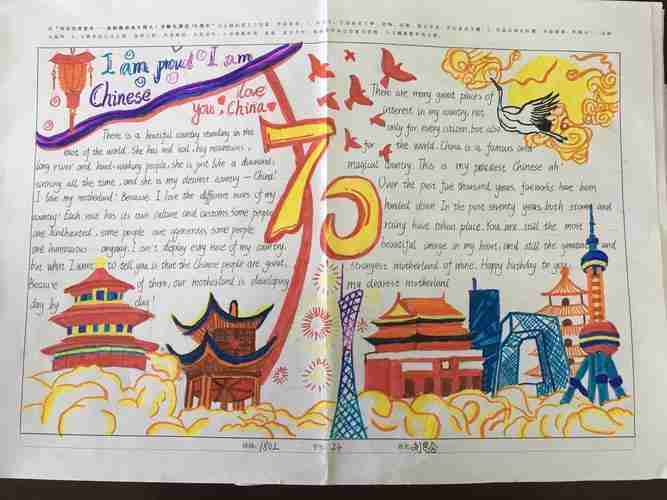 I am proud I am
Chinese
love
you, China
70
There is a beautiful country standing in the
east of the world. She has red soil, big mountains,
long river and hard-working people, she is just like a diamond,
shining all the time, and she is my dearest country — China!
I love my motherland! Because I love the different races of my
country! Each race has its own culture and customs. Some people
are kindhearted, some people are generous, some people
are humourous. anyway, I can't display every race of my country,
but what I want to tell you is that the Chinese people are great.
Because of them, our motherland is developing
day by day!
There are many great places of
interest in my country, not
only for every citizen, but also
for the world. China is a famous and
magical country. This is my
Chinese ah!
Over the past five thousand years, have been
handed down. In the past seventy years, both strong and
rising have taken place. You are still the most
beautiful image in my heart, and still the greatest and
strongest motherland of mine. Happy birthday to you,
my dearest motherland.
1802
24